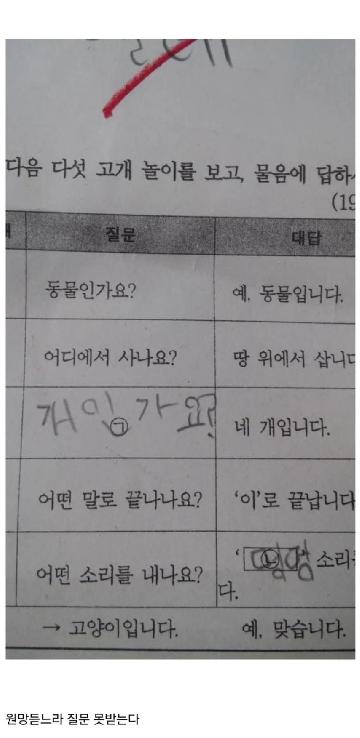 다음 다섯 고개 놀이를 보고, 물음에 답하
(19
질문 대답
동물인가요? 예, 동물입니다.
어디에서 사나요? 땅 위에서 삽니다
개인가요? ㉠ 네 개입니다.
어떤 말로 끝나나요? ‘이’로 끝납니다
어떤 소리를 내나요? ‘ ㉡ 소리
다.
→ 고양이입니다. 예, 맞습니다.
원망듣느라 질문 못받는다